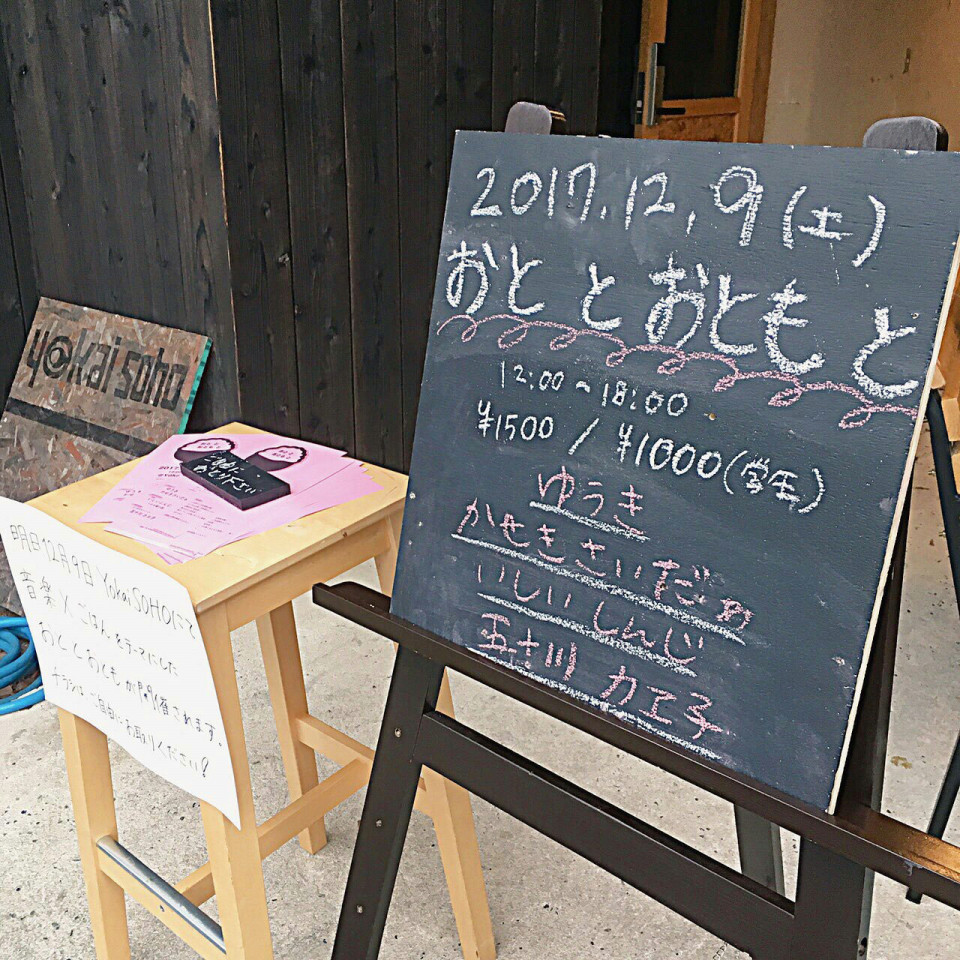 2017.12.9(土)
おと と おともと
12:00~18:00
¥1500 / ¥1000(学生)
ゆうき
かせきさいだぁ
いしいしんじ
五十川 カエ子
y@kai soho
ご自由に
おとりください
明日12月9日 YokaiSOHOにて
音楽とごはんをテーマにした
おととおともが開催されます。
チラシはご自由にお取りください!